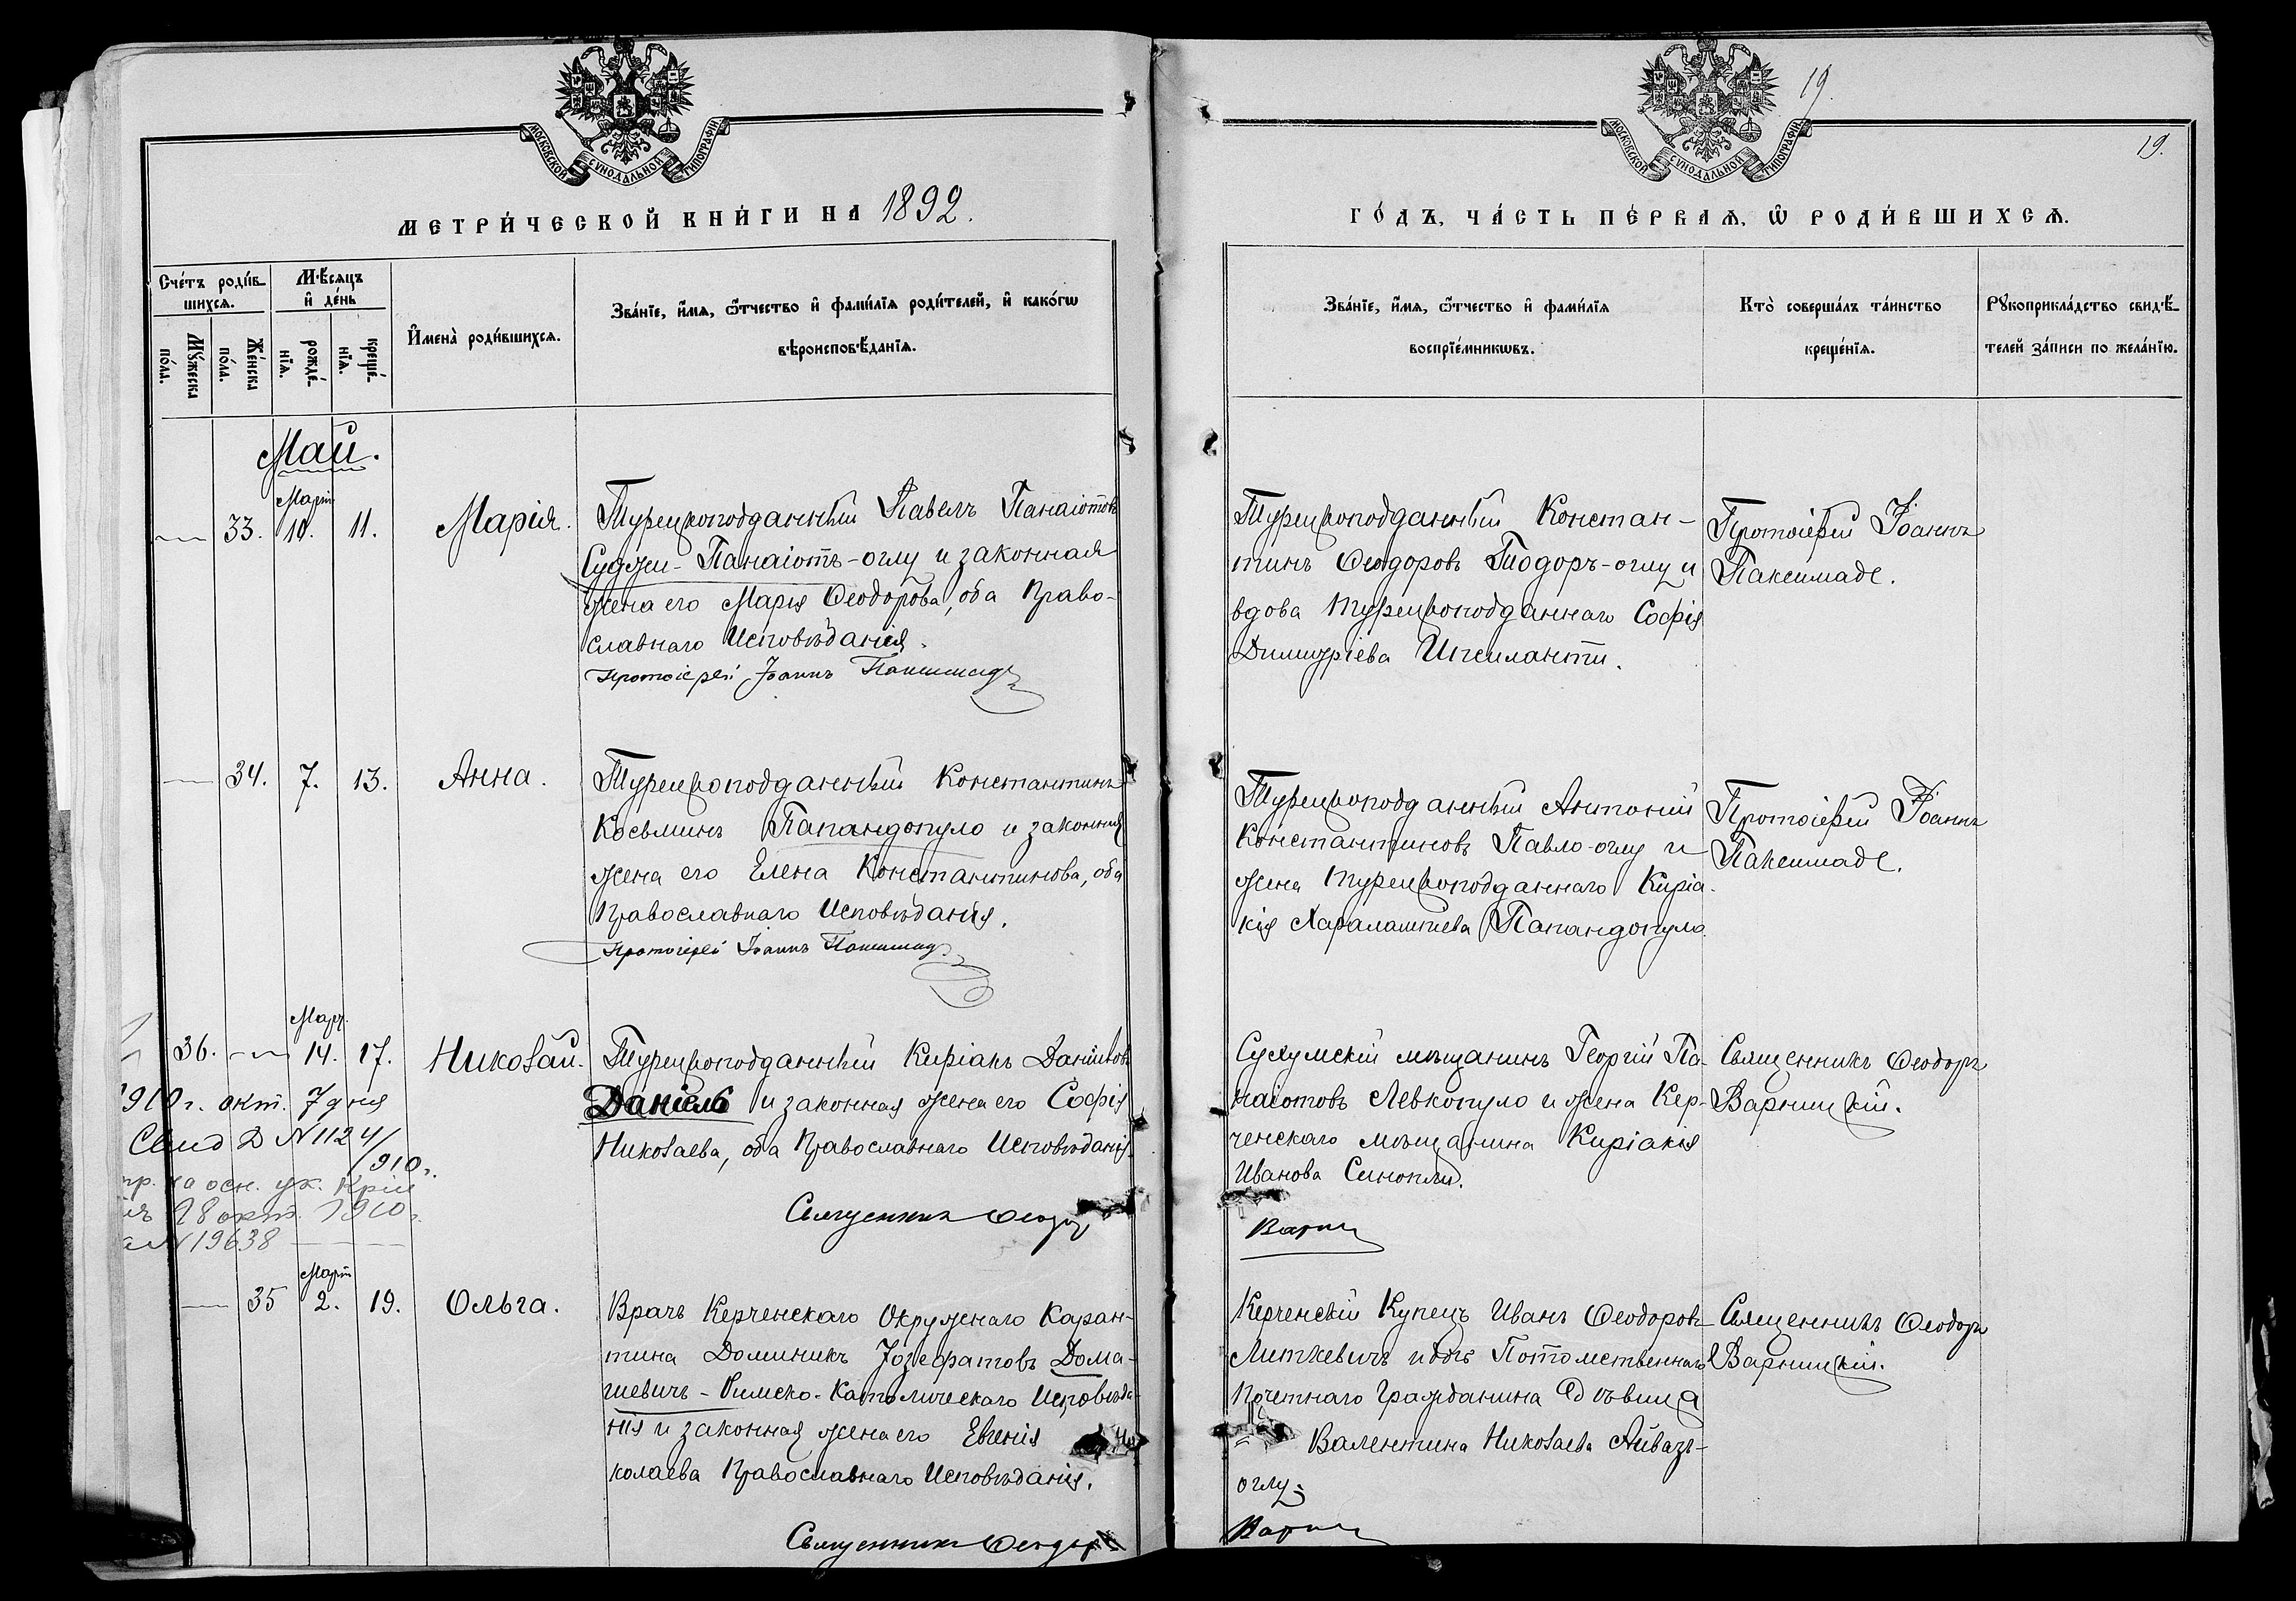 МОСКОВСКОЙ СѴНОДАЛЬНОЙ ТИПОГРАФІИ
МЕТРИ́ЧЕСКОЙ КНИ́ГИ НА 1892.
Сче́тъ роди́в-
шихсѧ.
Мѣ́сяцъ
и҆ де́нь
Мꙋ́жеска
по́ла.
Же́нска
по́ла.
рожде́-
нїѧ.
креще́-
нїѧ.
И҆мена̀ роди́вшихсѧ.
Зва́нїе, и҆́мѧ, ѻ҆́тчество и҆ фами́лїѧ роди́телей, и҆ како́гѡ
вѣроисповѣ́данїѧ.
Май.
— 33. Март 10. 11. Марія.
Турецкоподданный Павелъ Панаіотовъ
Суджи-Панаіотъ-оглу и законная
жена его Марія Ѳеодорова, оба Право-
славнаго Исповѣданія.
Протоіерей Іоаннъ
— 34. 7. 13. Анна.
Турецкоподданный Константинъ
Косьминъ Папандопуло и законная
жена его Елена Константинова, оба
Православнаго Исповѣданія.
Протоіерей Іоаннъ
36. — Март. 14. 17. Николай.
Турецкоподданный Киріакъ Даніиловъ
Даніелъ и законная жена его Софія
Николаева, оба Православнаго Исповѣданія.
1910 г. окт. 7 дня
Свид Д №1124/
910 г.
пр. на осн. ук.
28 окт. 1910 г.
за №19638
Священникъ Ѳеодоръ
— 35 Март 2. 19. Ольга.
Врачъ Керченскаго Окружнаго Каран-
тина Доминикъ Іозефатовъ Дома-
шевичъ - Римско-Католическаго Исповѣда-
нія и законная жена его Евгенія Ни-
колаева Православнаго Исповѣданія.
Священникъ Ѳеодоръ
19.
МОСКОВСКОЙ СѴНОДАЛЬНОЙ ТИПОГРАФІИ
19.
ГО́ДЪ, ЧА́СТЬ ПЕ́РВАѦ, Ѡ҆ РОДИ́ВШИХСѦ.
Зва́нїе, и҆́мѧ, ѻ҆́тчество и҆ фами́лїѧ
воспрїе́мникѡвъ.
Кто̀ соверша́лъ та́инство
креще́нїѧ.
Рꙋкоприкла́дство свидѣ́-
телей за́писи по жела́нїю.
Турецкоподданный Констан-
тинъ Ѳеодоровъ Тодоръ-оглу и
вдова турецкоподданнаго Софія
Димитріева Ипсиланти.
Протоіерей Іоаннъ
Паксимаде.
Турецкоподданный Антоній
Константиновъ Павло-оглу и
жена турецкоподданнаго Киріа-
кія Харалампіева Папандопуло.
Протоіерей Іоаннъ
Паксимаде.
Сухумскій мѣщанинъ Георгій Па-
наіотовъ Левкопуло и жена Кер-
ченскаго мѣщанина Киріакія
Иванова Синопли.
Священникъ Ѳеодоръ
Варницкій.
Варни
Керченскій Купецъ Иванъ Ѳеодоровъ
Литкевичъ и дочь Потомственнаго
Почетнаго Гражданина дѣвица
Валентина Николаева Айвазъ-
оглу.
Священникъ Ѳеодоръ
Варницкій.
Варни